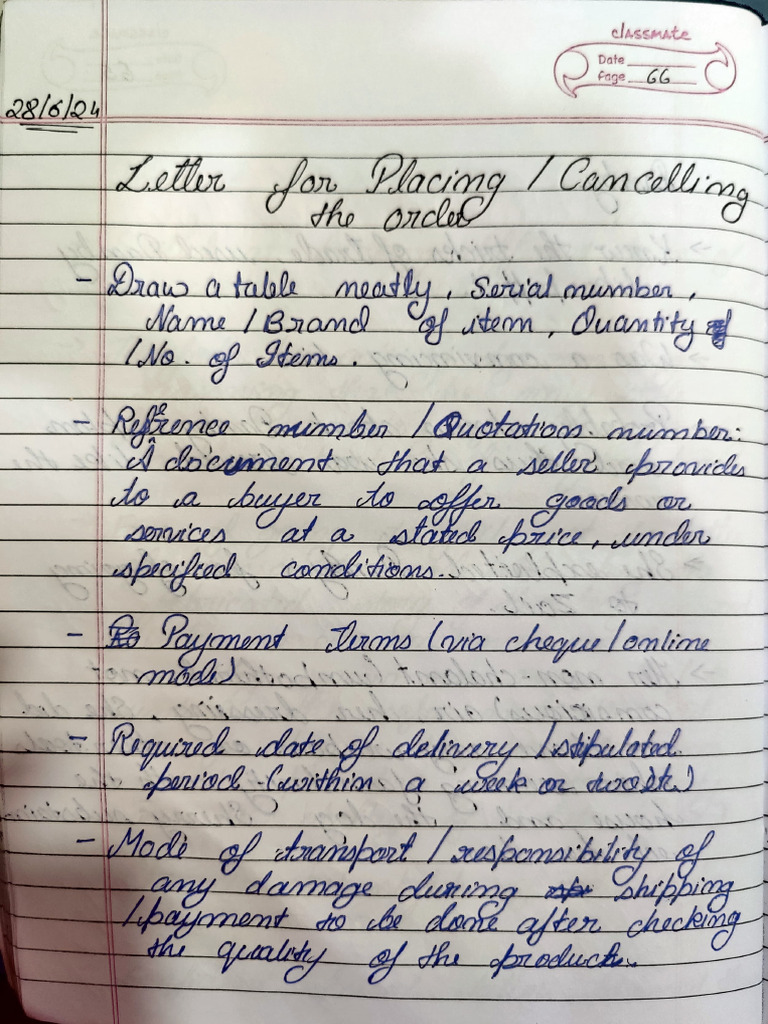 classmate
Date
Page 66
28/6/24
Letter for Placing / Cancelling
the order
- Draw a table neatly, Serial number,
Name / Brand of item, Quantity
/ No. of Items.
- Reference number / Quotation number:
A document that a seller provides
to a buyer to offer goods or
services at a stated price, under
specified conditions.
- Payment terms (via cheque / online
mode)
- Required date of delivery / stipulated
period (within a week or two)
- Mode of transport / responsibility of
any damage during shipping
/ payment to be done after checking
the quality of the product.